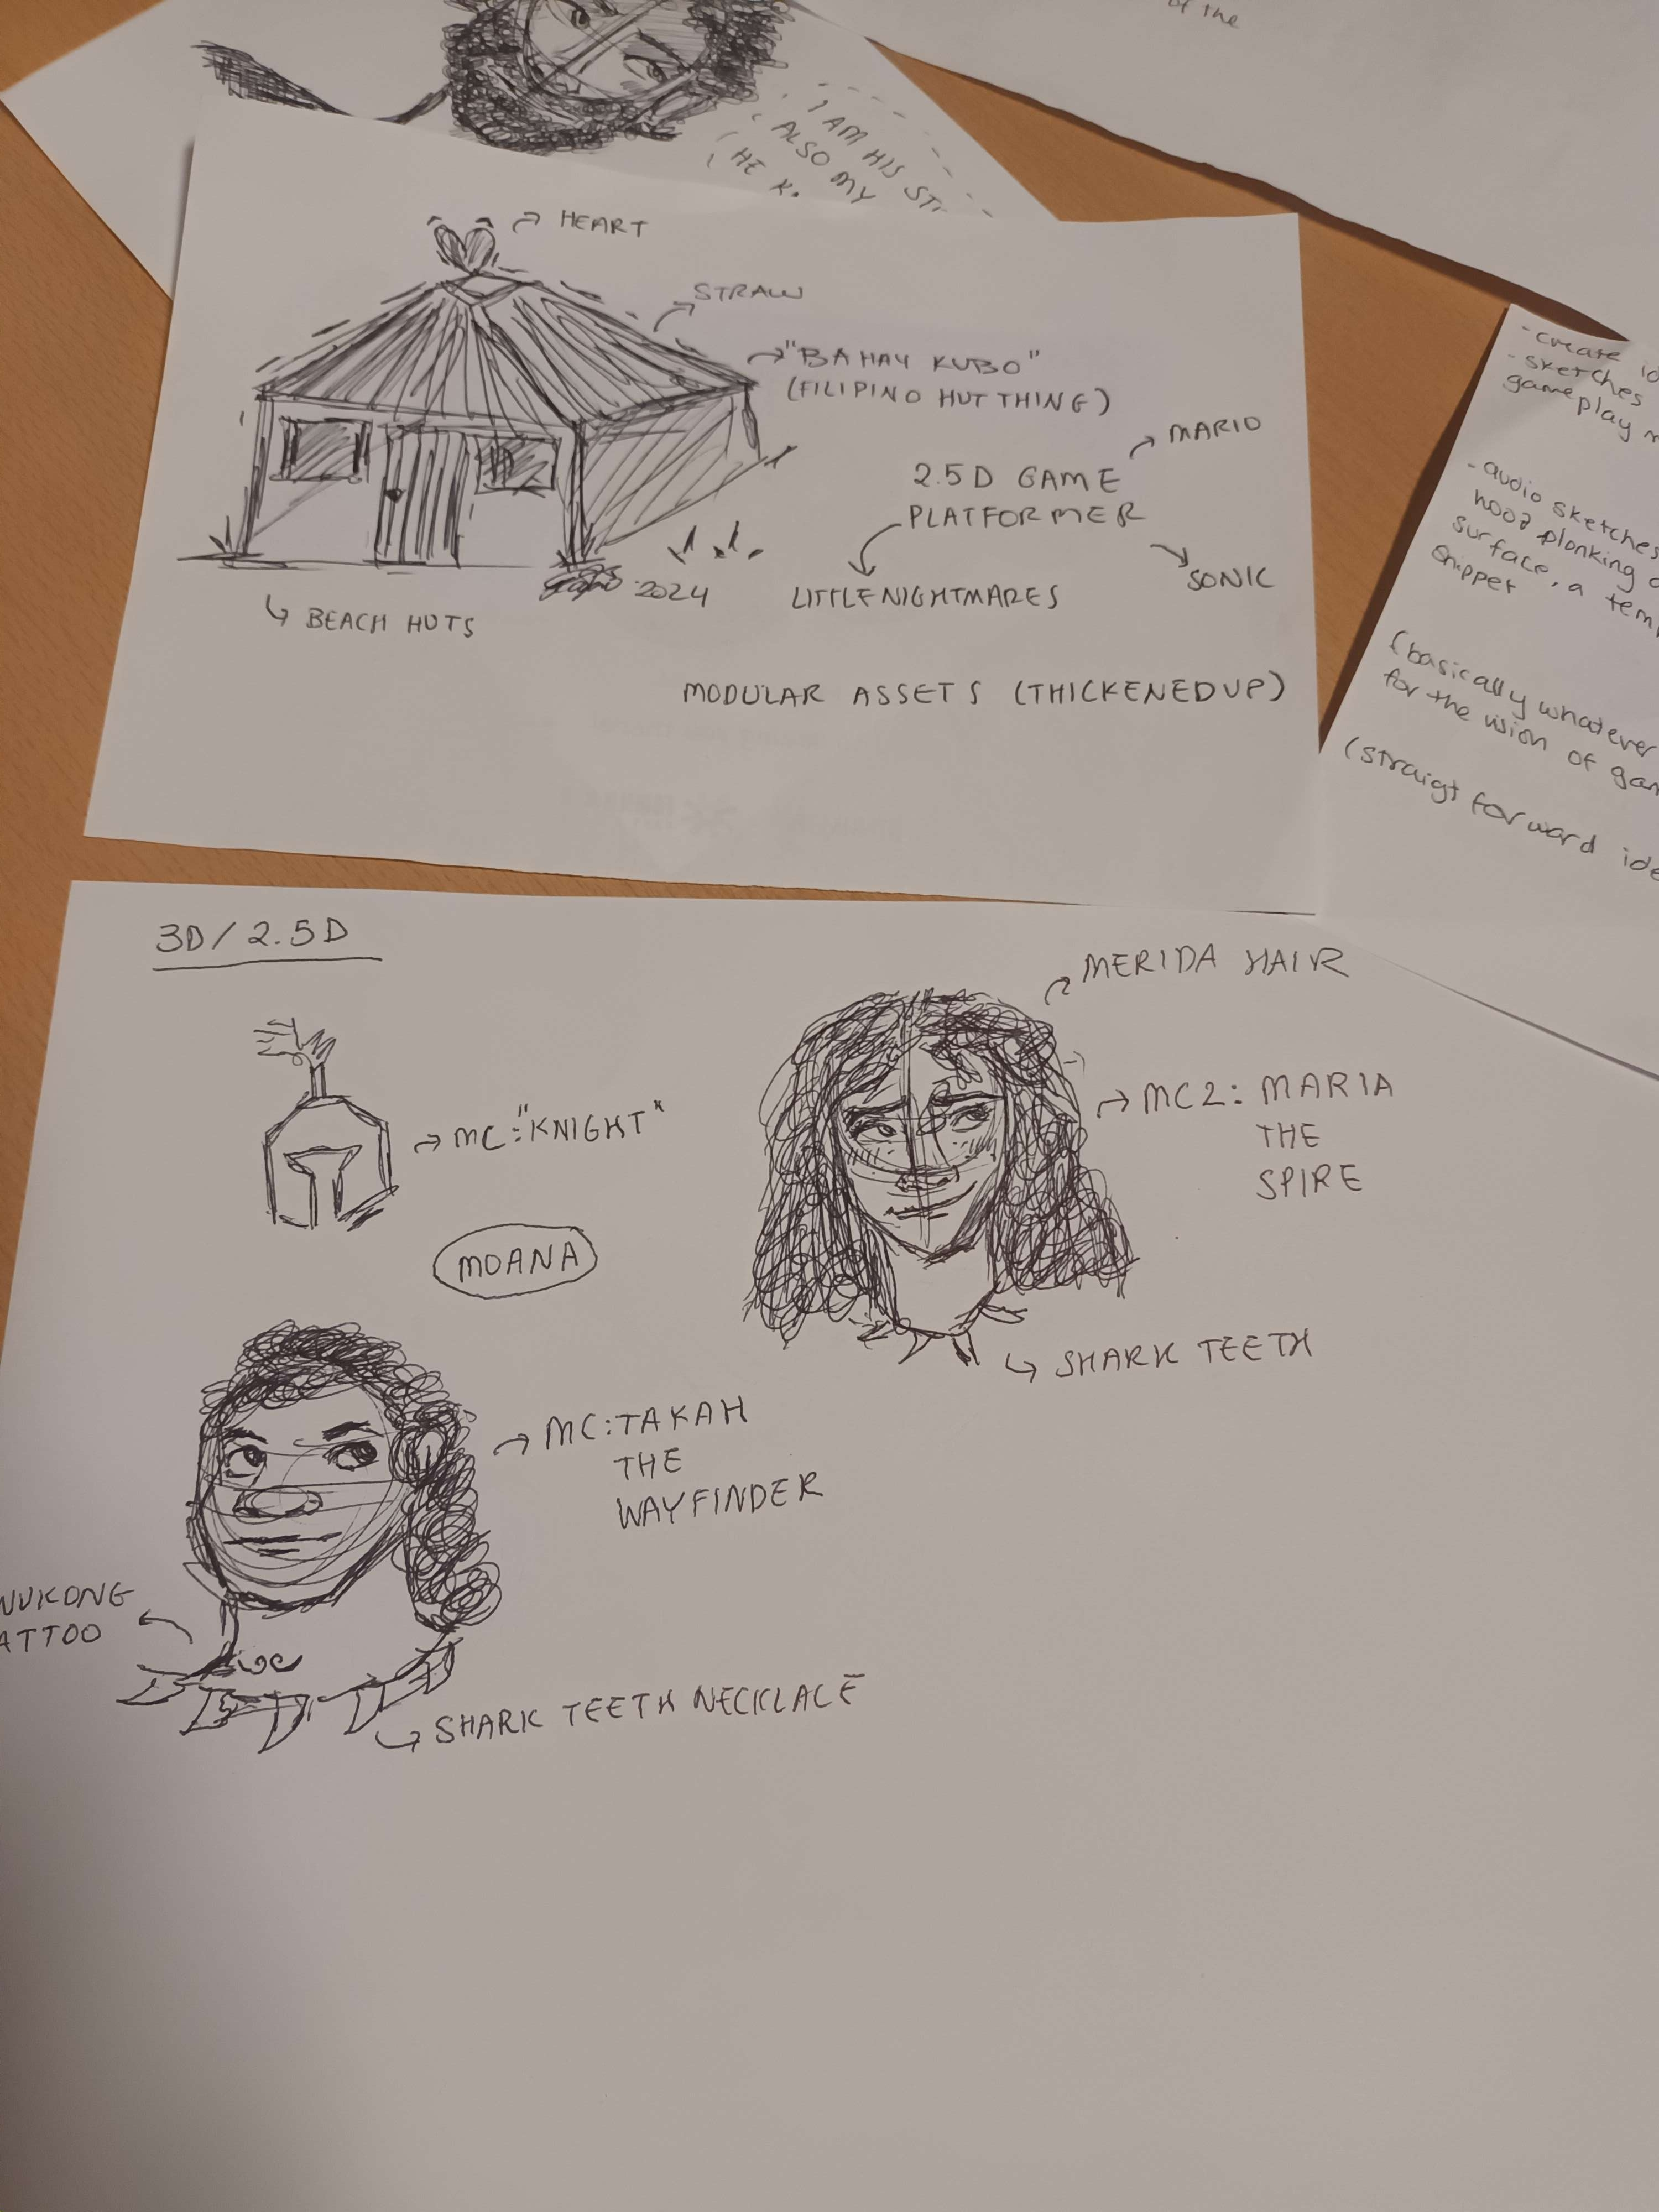 of the
I AM HIS
ALSO MY
HE
HEART
STRAW
"BAHAY KUBO"
(FILIPINO HUT THING)
MARIO
2.5D GAME
PLATFORMER
SONIC
LITTLE NIGHTMARES
2024
BEACH HUTS
MODULAR ASSETS (THICKENED UP)
- create
- sketches
gameplay
- audio sketches
plonking
surface, a
snippet
(basically whatever
for the vision of
(straigt forward
3D/2.5D
MERIDA HAIR
MC:"KNIGHT"
MC2: MARIA
THE
SPIRE
MOANA
SHARK TEETH
MC:TAKAH
THE
WAYFINDER
UKONG
ATTOO
SHARK TEETH NECKLACE